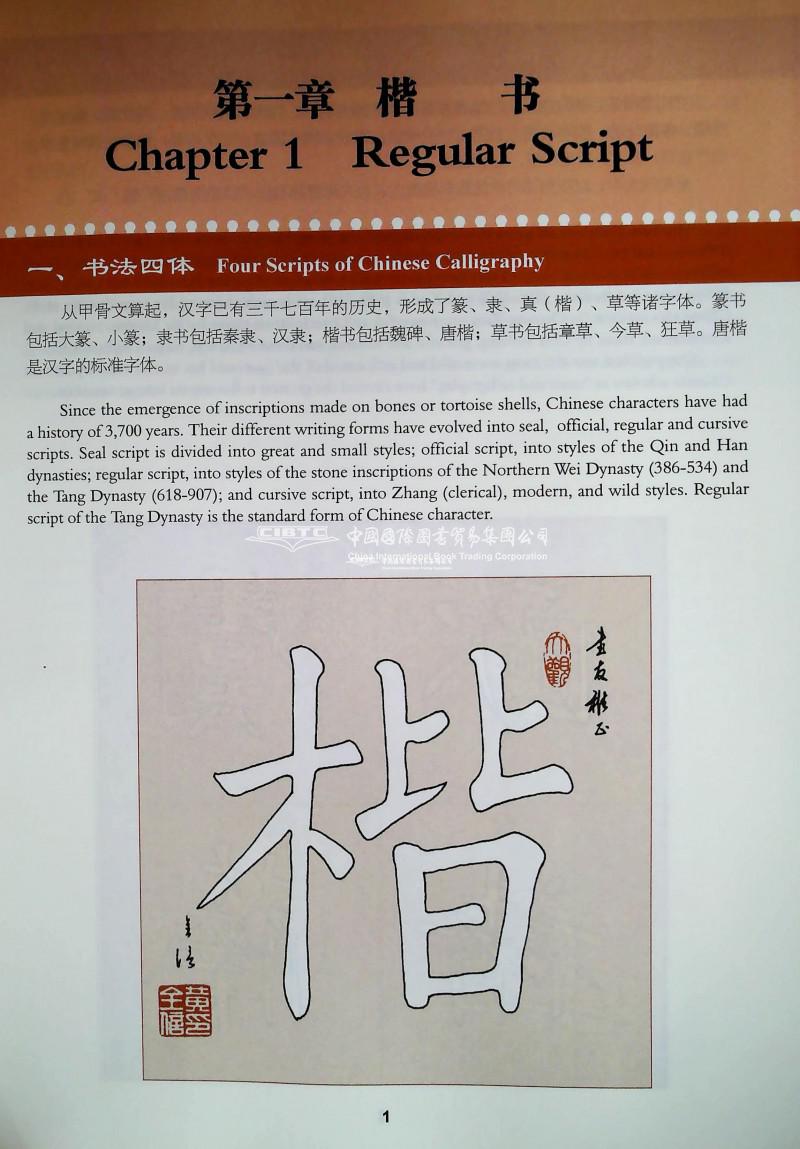 第一章 楷 书
Chapter 1 Regular Script
一、书法四体 Four Scripts of Chinese Calligraphy
从甲骨文算起，汉字已有三千七百年的历史，形成了篆、隶、真（楷）、草等诸字体。篆书
包括大篆、小篆；隶书包括秦隶、汉隶；楷书包括魏碑、唐楷；草书包括章草、今草、狂草。唐楷
是汉字的标准字体。
Since the emergence of inscriptions made on bones or tortoise shells, Chinese characters have had
a history of 3,700 years. Their different writing forms have evolved into seal, official, regular and cursive
scripts. Seal script is divided into great and small styles; official script, into styles of the Qin and Han
dynasties; regular script, into styles of the stone inscriptions of the Northern Wei Dynasty (386-534) and
the Tang Dynasty (618-907); and cursive script, into Zhang (clerical), modern, and wild styles. Regular
script of the Tang Dynasty is the standard form of Chinese character.
CIBTC 中國國際圖書貿易集團公司
China International Book Trading Corporation
書友雅正
大觀
楷
全信
黄全信印
1